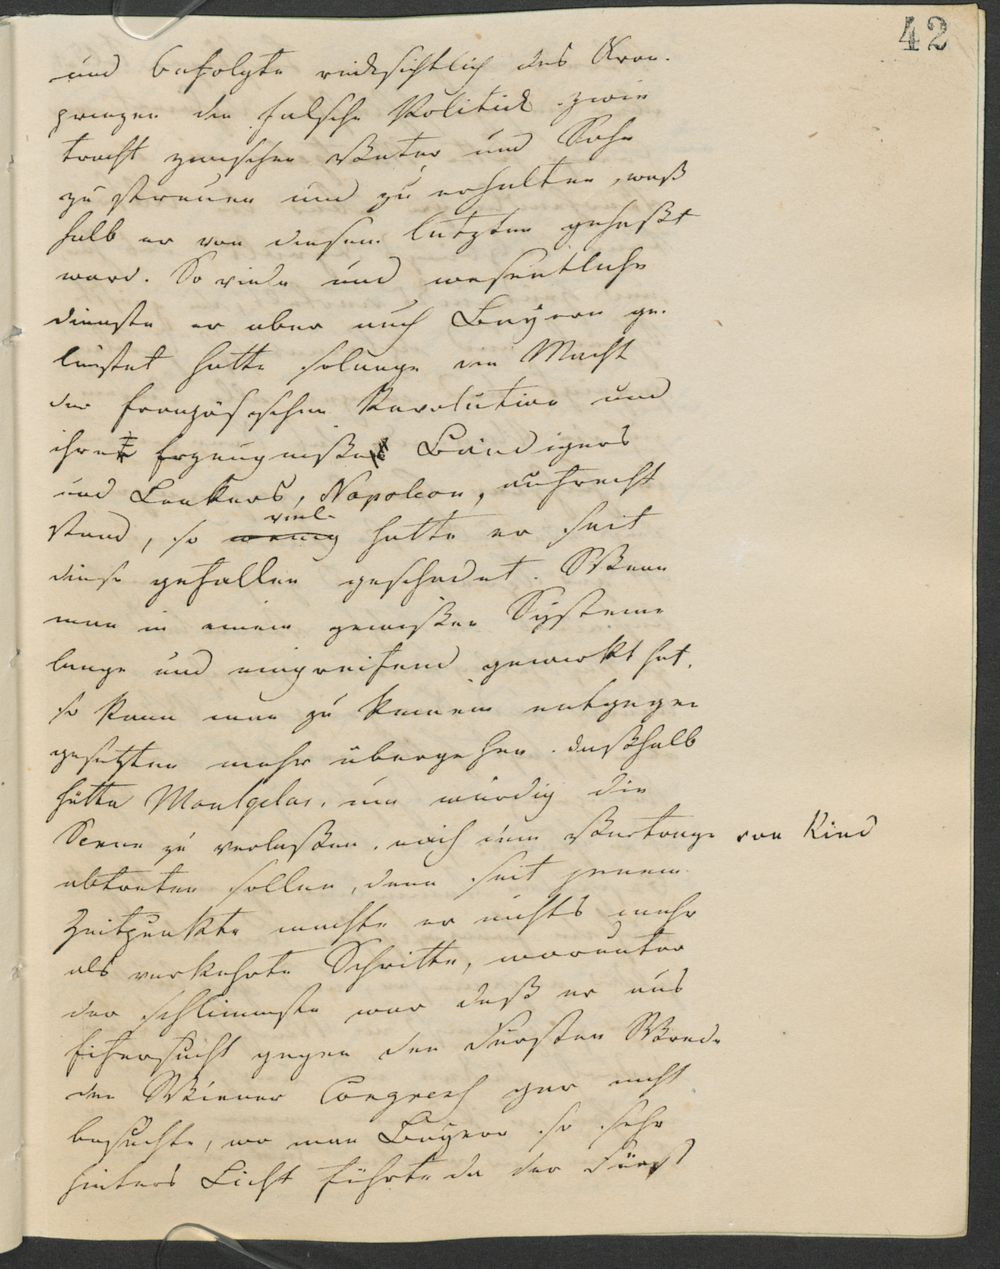 42
und befolgte rücksichtlich des Kron-
prinzen die falsche Politick Zwie
tracht zwischen Vater und Sohn
zu streuen und zu erhalten, weß
halb er von diesem letzten gehaßt
ward. So viele und wesentliche
Dienste er aber auch Bayern ge-
leistet hatte solange die Macht
der französischen Revolution und
ihres Erzeugnißes Bändigers
und Lenkers, Napoleon, aufrecht
stand, so wenig viel hatte er seit
diese gefallen geschadet. Wenn
man in einem gewißen Systeme
lange und eingreifend gewirkt hat,
so kann man zu keinem entgegen
gesetzten mehr übergehen. Deßhalb
hätte Montgelas, um würdig die
Scene zu verlaßen, nach dem Vertrage von Ried
abtreten sollen, denn seit jenem
Zeitpunkte machte er nichts mehr
als verkehrte Schritte, worunter
der schlimmste war daß er aus
Eifersucht gegen den Fürsten Wrede
den Wiener Congreß gar nicht
besuchte, wo man Bayern so sehr
hinters Licht führte da der Fürst